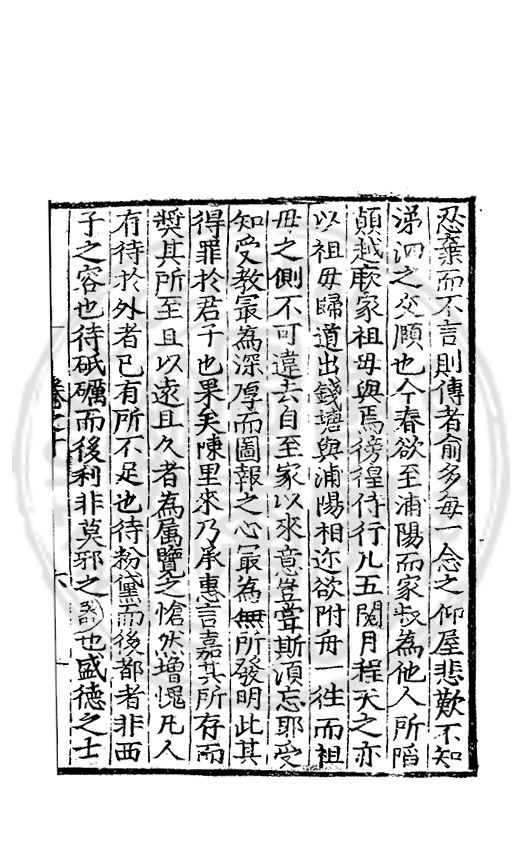 忍棄而不言則傳者俞多每一念之仰屋悲歎不知
涕泗之交頤也今春欲至浦陽而家叔為他人所䧟
顛越厥家祖毋與焉徬徨侍行凡五閱月程天之亦
以祖毋歸道出錢塘與浦陽相迩欲附舟一徃而祖
毋之側不可違去自至家以來意豈甞斯湏忘耶受
知受教冣為深厚而圖報之心冣為無所發明此其
得罪於君子也果矣陳里來乃承惠言嘉其所存而
奬其所至且以遠且久者為属覽之愴然增愧凡人
有待於外者已有所不足也待粉黛而後都者非西
子之容也待砥礪而後利非莫邪之器也盛德之士
卷之十
六